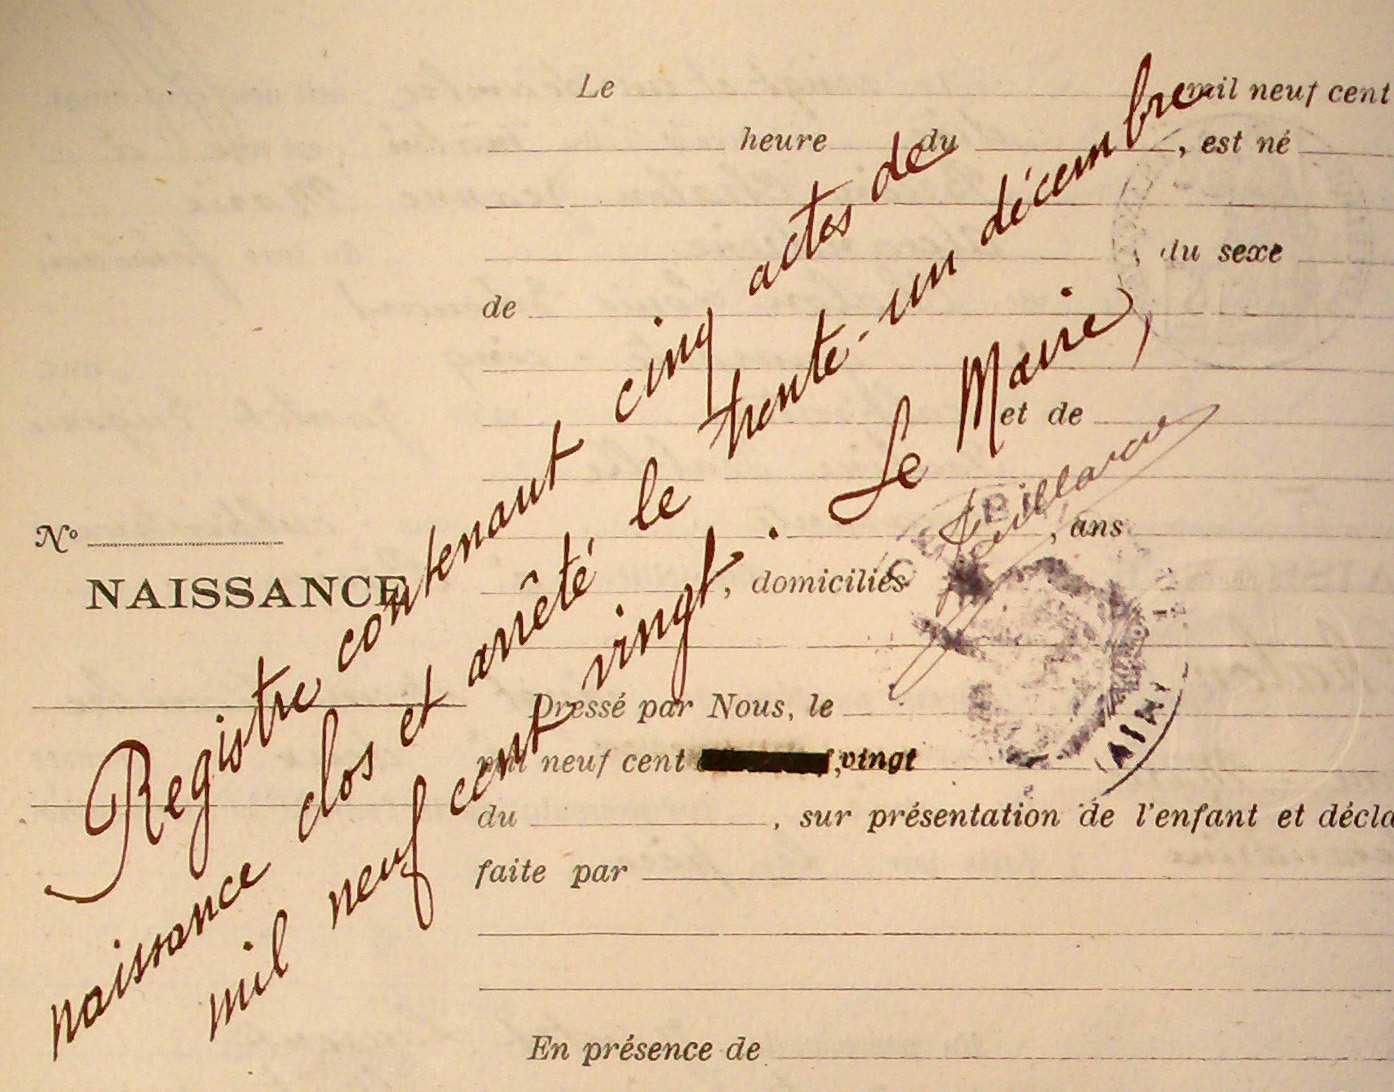 Le mil neuf cent
heure du , est né
, du sexe
de
et de
, ans
, domiciliés
Nº
NAISSANCE
Registre contenant cinq actes de
naissance clos et arrêté le trente-un décembre
mil neuf cent vingt. Le Maire,
AIN
Dressé par Nous, le
mil neuf cent , vingt
du , sur présentation de l'enfant et décla
faite par
En présence de